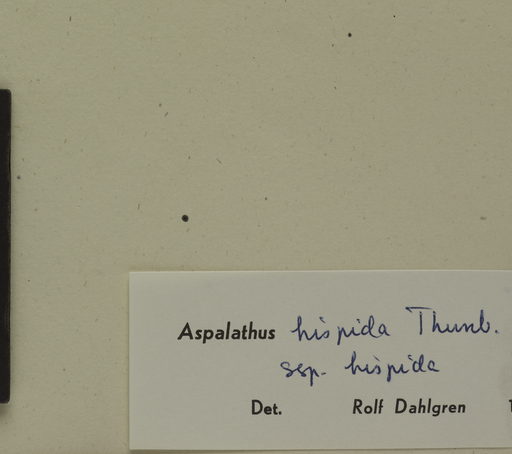 Aspalathus hispida Thunb.
ssp. hispida
Det. Rolf Dahlgren 1